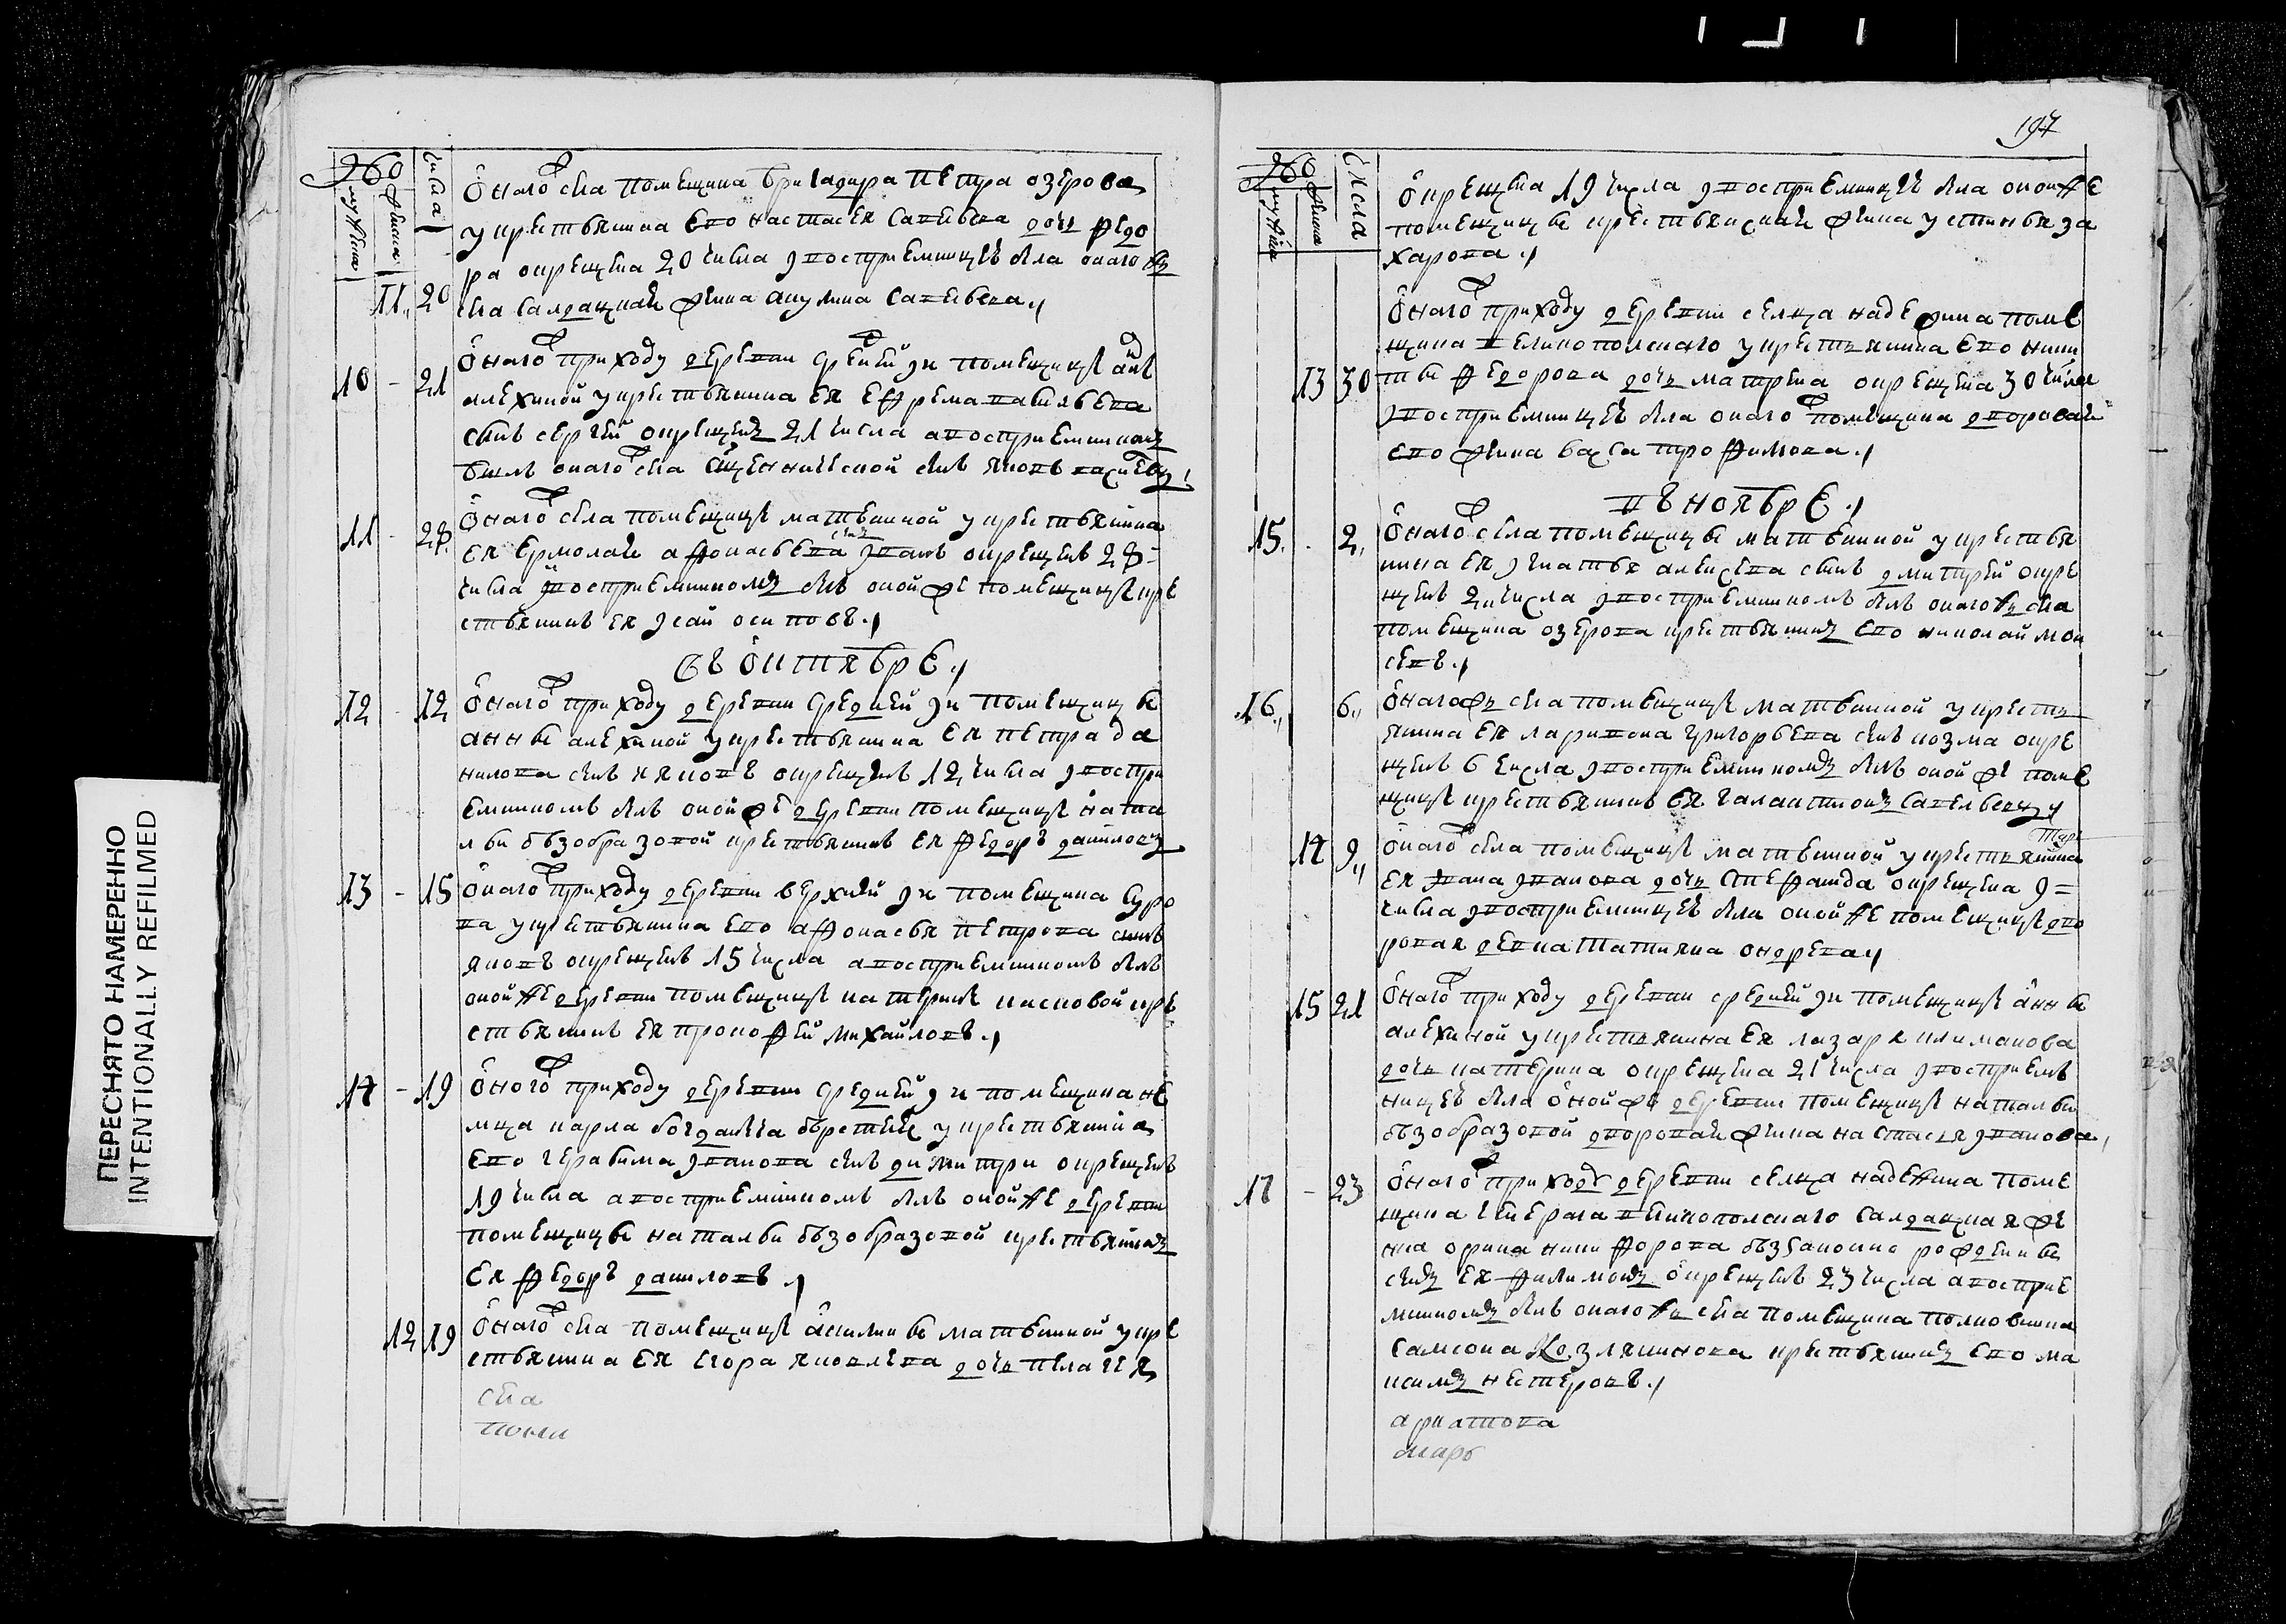 197
Число
Онаго села помещика бригадира Петра Озерова
у крестьянина ево Настасея Савельева дочь Федо
ра окрещена 20 числа восприемницею была онаго жъ
11 20 села салдацкая жена Акулина Савельева
10 - 21 Онаго приходу деревни помещицы
Алехиной у крестьянина ея Ефрема Васильева
сынъ Сергей окрещенъ 21 числа а восприемникомъ
былъ онаго села сщеннической сынъ Яковъ
11 - 28 Онаго села помещицы Матвеиной у крестьянина
сынъ
ея Ермолая Афонасьева Иванъ окрещенъ 28
числа восприемникомъ былъ оной же помещицы кре
стьянинъ ея Исай Осиповъ
Въ октябре
12 - 12 Онаго приходу деревни Средней помещицы
Анны Алехиной у крестьянина ея Петра Да
нилова сынъ Яковъ окрещенъ 12 числа воспри
емникомъ былъ оной же деревни помещицы Ната
льи Обзобразовой крестьянинъ ея Федоръ Даниловъ
13 - 15 Онаго приходу деревни Верхней помещика Суро
ва у крестьянина ево Афонасья Петрова сынъ
Яковъ окрещенъ 15 числа а восприемникомъ былъ
оной же деревни помещицы Катерины кре
стьянинъ ея Прокофей Михайловъ
14 - 19 Оного приходу деревни Средней помещика не
мца Карла у крестьянина
ево Герасима Иванова сынъ Димитри окрещенъ
19 числа а восприемникомъ былъ оной же деревни
помещицы Натальи Обзобразовой крестьянинъ
ея Федоръ Даниловъ
12 19 Онаго села помещицы Акилины Матвеиной у кре
стьянина ея Егора Яковлева дочь Пелагея
села
поми
Число
окрещена 19 числа восприемницею была оной же
помещицы крестьянская жена Устинья За
харова
Онаго приходу деревни селца Надежина поме
щика Великопольскаго у крестьянина ево Ники
13 30 ты Федорова дочь Матрена окрещена 30 числа
восприемницею была онаго помещика дворовая
ево жена Васса Трофимова
В ноябре
15 - 2 Онаго села помещицы Матвеиной у крестья
нина ея Игнатья Алексеева сынъ Дмитрей окре
щенъ 2 числа восприемникомъ былъ онаго жъ села
помещика Озерова крестьянинъ ево Николай Мои
сеевъ
16 6 Онагожъ села помещицы Матвеиной у кресть
янина ея Ларивона Григорьева сынъ Козма окре
щенъ 6 числа восприемникомъ былъ оной же поме
щицы крестьянинъ ея Галактионъ Савельевъ
14 9 Онаго села помещицы Матвеиной у крестьянина
ея Ивана Иванова дочь Стефанида окрещена 9
числа восприемницею была оной же помещицы дво
ровая девка Татияна
15 21 Онаго приходу деревни Средней помещицы Анны
Алехиной у крестьянина ея Лазаря Климанова
дочь Катерина окрещена 21 числа восприем
ницею была оной же деревни помещицы Натальи
Обзобразовой дворовая жена Настасья Иванова
17 - 23 Онаго приходу деревни селца Надежина поме
щика Великопольскаго салдацкая же
нка Орина Никифорова беззаконно рожденны
сынъ ея Филимонъ окрещенъ 23 числа а восприе
мникомъ былъ онаго жъ села помещика полковника
Самсона крестьянинъ ево Ма
ксимъ Нестеровъ
ПЕРЕСНЯТО НАМЕРЕННО
INTENTIONALLY REFILMED